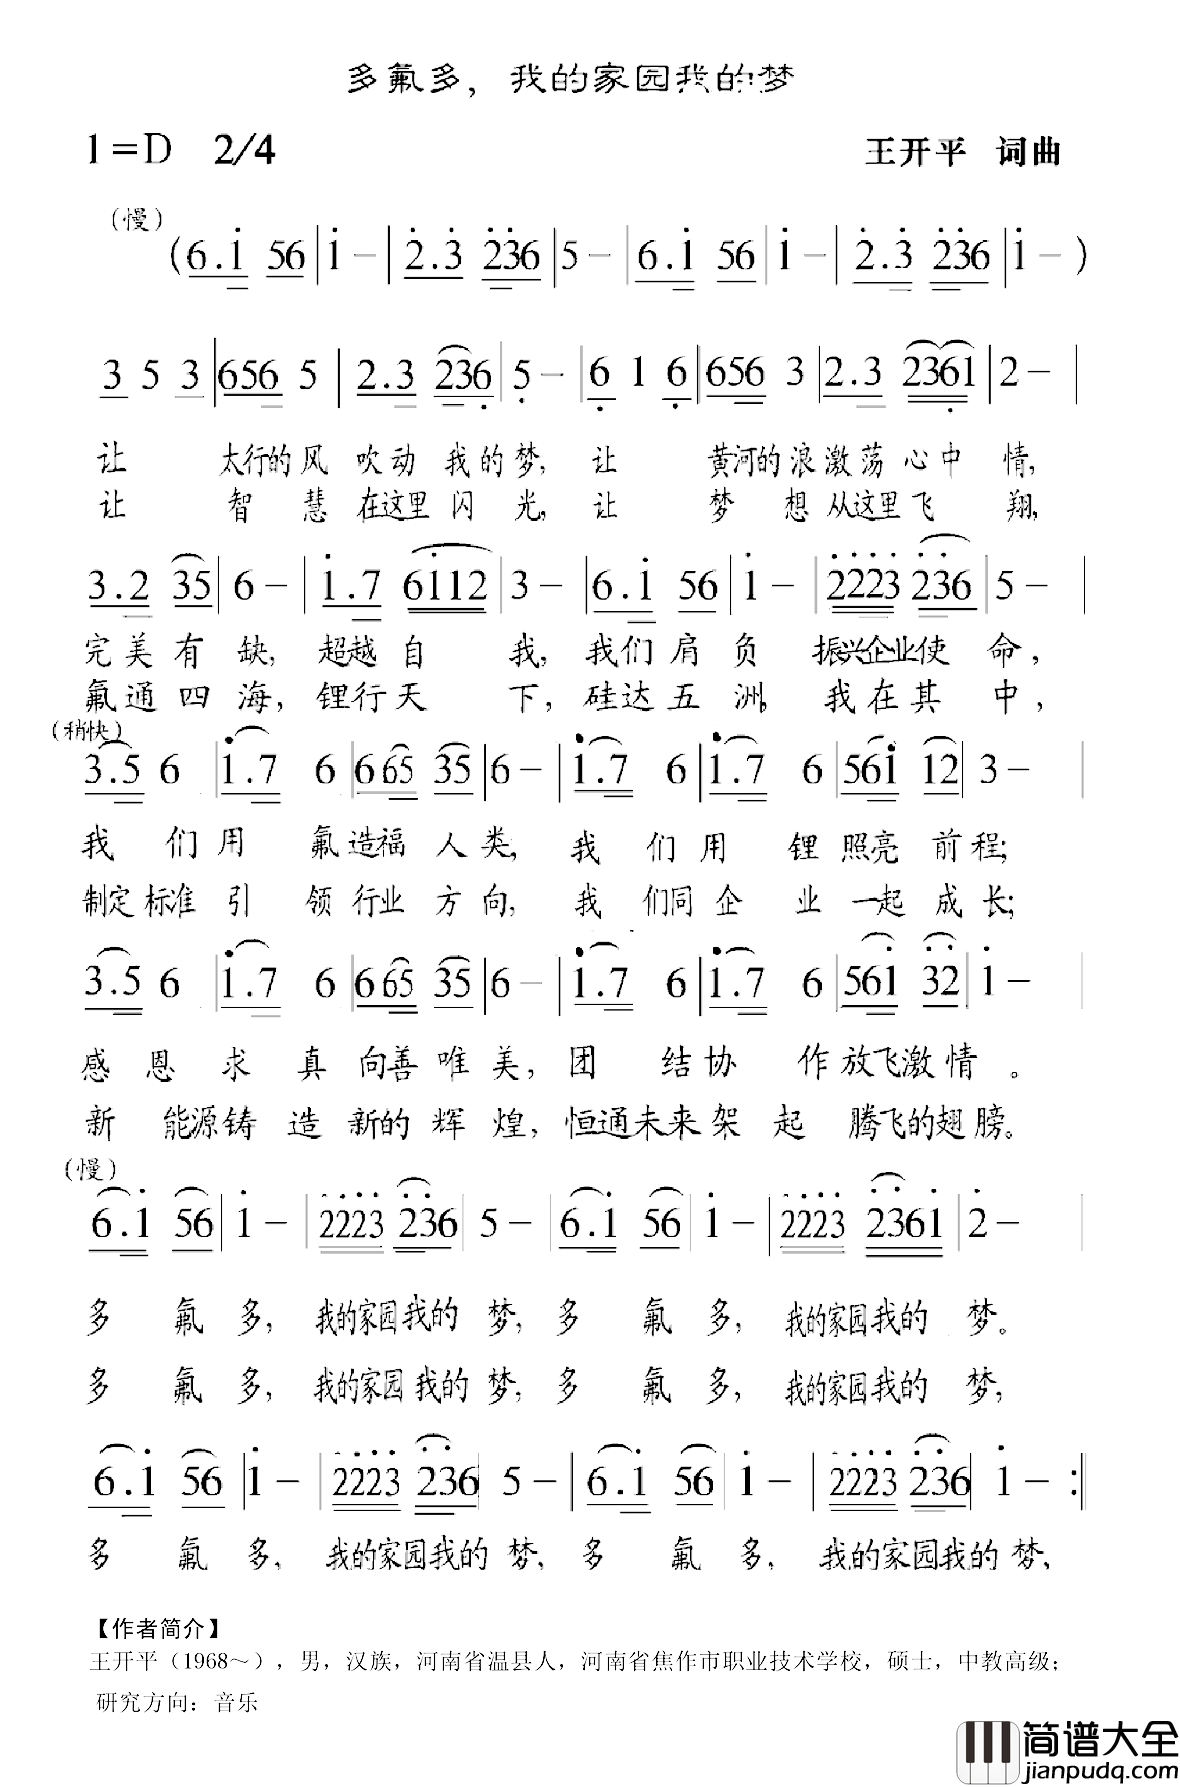 多氟多，我的家园我的梦
1=D 2/4 王开平 词曲
（慢）
(6.i 56|i -|2.3 236|5 -|6.i 56|i -|2.3 236|i -)
3 5 3|656 5|2.3 236|5 -|6 1 6|656 3|2.3 2361|2 -|
让 太行的风 吹动 我的梦，让 黄河的浪激荡 心中 情，
让 智 慧 在这里 闪 光，让 梦 想 从这里飞 翔，
3.2 35|6 -|i.7 6i12|3 -|6.i 56|i -|2223 236|5 -|
完美有 缺，超越自 我，我们肩 负 振兴企业使 命，
氟通四 海，锂行天 下，硅达五 洲，我在其 中，
（稍快）
3.5 6|i.7 6|665 35|6 -|i.7 6|i.7 6|56i 12|3 -|
我 们用 氟造福 人 类，我 们用 锂 照亮 前程；
制定标准 引 领 行业 方 向，我 们同企 业 一起 成长；
3.5 6|i.7 6|665 35|6 -|i.7 6|i.7 6|56i 32|i -|
感 恩 求 真 向善唯 美，团 结协 作放飞激情。
新 能源铸 造 新的 辉 煌，恒通未来架 起 腾飞的翅膀。
（慢）
6.i 56|i -|2223 236|5 -|6.i 56|i -|2223 236i|2 -|
多 氟 多，我的家园我的 梦，多 氟 多，我的家园我的 梦。
多 氟 多，我的家园我的 梦，多 氟 多，我的家园我的 梦，
6.i 56|i -|2223 236|5 -|6.i 56|i -|2223 236|i -:||
多 氟 多，我的家园我的 梦，多 氟 多，我的家园我的 梦，
【作者简介】
王开平（1968～），男，汉族，河南省温县人，河南省焦作市职业技术学校，硕士，中教高级；
研究方向：音乐
简谱大全
jianpudq.com